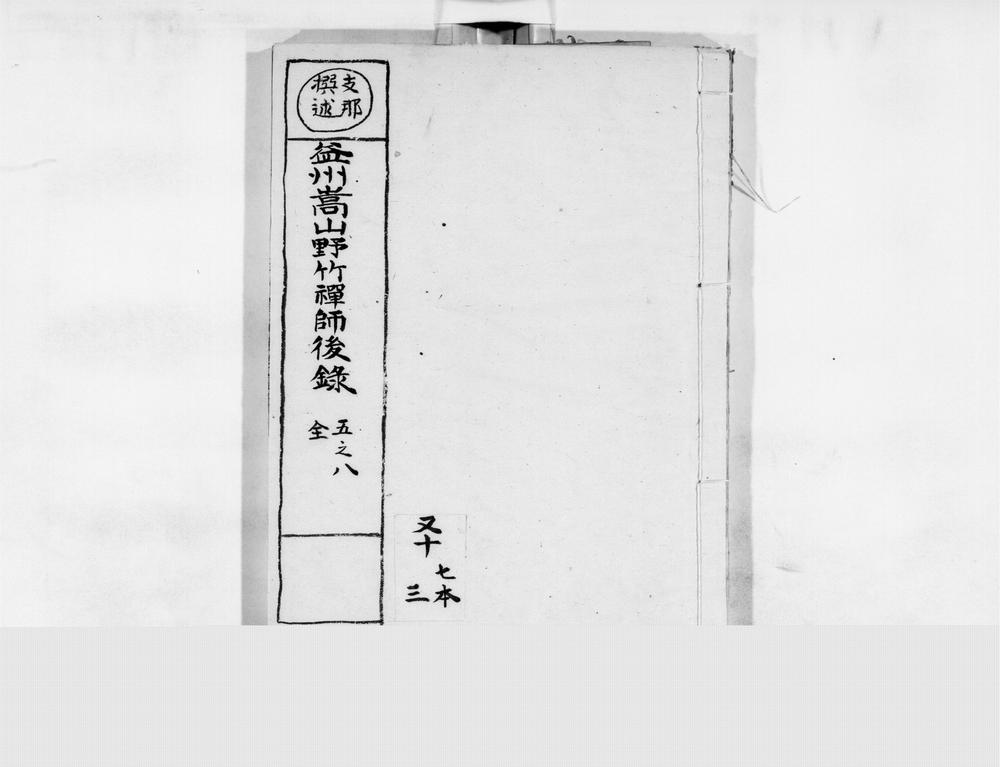 支那
撰述
益州嵩山野竹禪師後錄
五之八
全
又十
七本
三